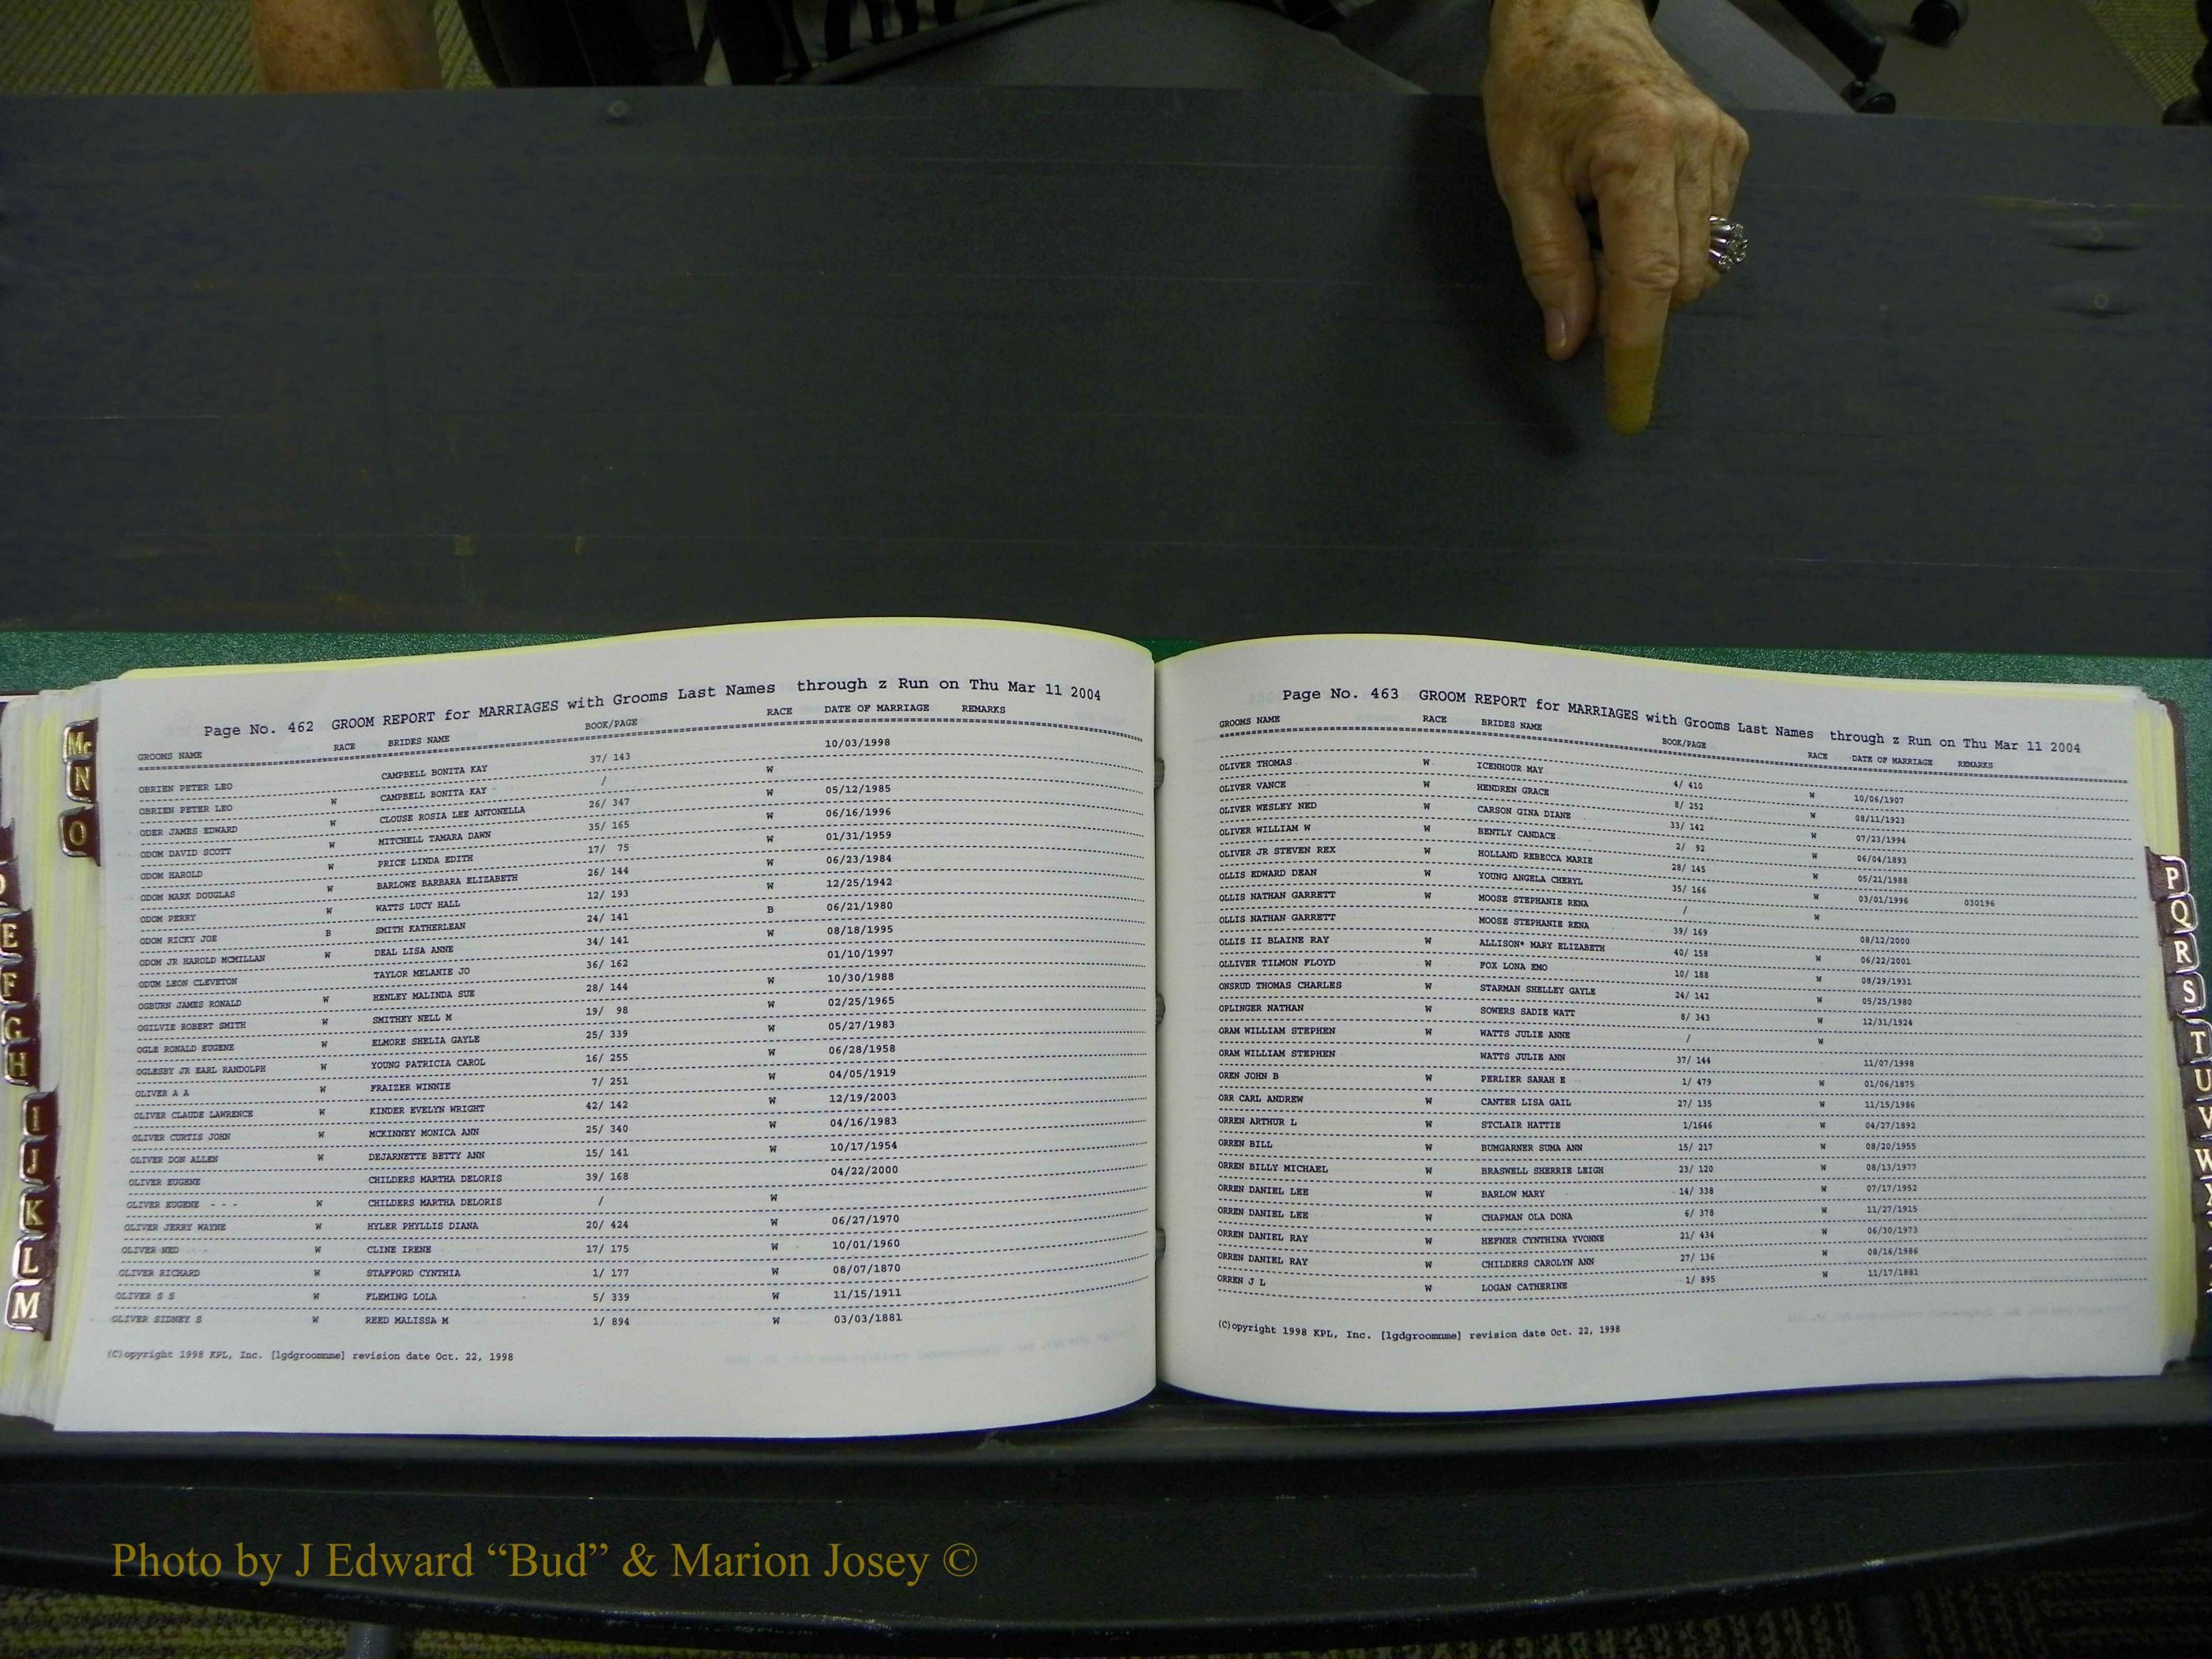 Page No. 462 GROOM REPORT for MARRIAGES with Grooms Last Names through z Run on Thu Mar 11 2004
GROOMS NAME RACE BRIDES NAME BOOK/PAGE RACE DATE OF MARRIAGE REMARKS
OBRIEN PETER LEO CAMPBELL BONITA KAY 37/ 143 10/03/1998
OBRIEN PETER LEO W CAMPBELL BONITA KAY / W
ODER JAMES EDWARD W CLOUSE ROSIA LEE ANTONELLA 26/ 347 W 05/12/1985
ODOM DAVID SCOTT W MITCHELL TAMARA DAWN 35/ 165 W 06/16/1996
ODOM HAROLD W PRICE LINDA EDITH 17/ 75 W 01/31/1959
ODOM MARK DOUGLAS W BARLOWE BARBARA ELIZABETH 26/ 144 W 06/23/1984
ODOM PERRY W WATTS LUCY HALL 12/ 193 W 12/25/1942
ODOM RICKY JOE B SMITH KATHERLEAN 24/ 141 B 06/21/1980
ODOM JR HAROLD MCMILLAN W DEAL LISA ANNE 34/ 141 W 08/18/1995
ODUM LEON CLEVETON TAYLOR MELANIE JO 36/ 162 01/10/1997
OGBURN JAMES RONALD W HENLEY MALINDA SUE 28/ 144 W 10/30/1988
OGILVIE ROBERT SMITH W SMITHEY NELL M 19/ 98 W 02/25/1965
OGLE RONALD EUGENE W ELMORE SHELIA GAYLE 25/ 339 W 05/27/1983
OGLESBY JR EARL RANDOLPH W YOUNG PATRICIA CAROL 16/ 255 W 06/28/1958
OLIVER A A W FRAIZER WINNIE 7/ 251 W 04/05/1919
OLIVER CLAUDE LAWRENCE W KINDER EVELYN WRIGHT 42/ 142 W 12/19/2003
OLIVER CURTIS JOHN W MCKINNEY MONICA ANN 25/ 340 W 04/16/1983
OLIVER DON ALLEN W DEJARNETTE BETTY ANN 15/ 141 W 10/17/1954
OLIVER EUGENE CHILDERS MARTHA DELORIS 39/ 168 04/22/2000
OLIVER EUGENE - - - W CHILDERS MARTHA DELORIS / W
OLIVER JERRY WAYNE W HYLER PHYLLIS DIANA 20/ 424 W 06/27/1970
OLIVER NED W CLINE IRENE 17/ 175 W 10/01/1960
OLIVER RICHARD W STAFFORD CYNTHIA 1/ 177 W 08/07/1870
OLIVER S S W FLEMING LOLA 5/ 339 W 11/15/1911
OLIVER SIDNEY S W REED MALISSA M 1/ 894 W 03/03/1881
(C)opyright 1998 KPL, Inc. [lgdgroomnme] revision date Oct. 22, 1998
Page No. 463 GROOM REPORT for MARRIAGES with Grooms Last Names through z Run on Thu Mar 11 2004
GROOMS NAME RACE BRIDES NAME BOOK/PAGE RACE DATE OF MARRIAGE REMARKS
OLIVER THOMAS W ICENHOUR MAY 4/ 410 W 10/06/1907
OLIVER VANCE W HENDREN GRACE 8/ 252 W 08/11/1923
OLIVER WESLEY NED W CARSON GINA DIANE 33/ 142 W 07/23/1994
OLIVER WILLIAM W W BENTLY CANDACE 2/ 92 W 06/04/1893
OLIVER JR STEVEN REX W HOLLAND REBECCA MARIE 28/ 145 W 05/21/1988
OLLIS EDWARD DEAN W YOUNG ANGELA CHERYL 35/ 166 W 03/01/1996 030196
OLLIS NATHAN GARRETT W MOOSE STEPHANIE RENA / W
OLLIS NATHAN GARRETT MOOSE STEPHANIE RENA 39/ 169 08/12/2000
OLLIS II BLAINE RAY W ALLISON* MARY ELIZABETH 40/ 158 W 06/22/2001
OLLIVER TILMON FLOYD W FOX LONA EMO 10/ 188 W 08/29/1931
ONSRUD THOMAS CHARLES W STARMAN SHELLEY GAYLE 24/ 142 W 05/25/1980
OPLINGER NATHAN W SOWERS SADIE WATT 8/ 343 W 12/31/1924
ORAM WILLIAM STEPHEN W WATTS JULIE ANNE / W
ORAM WILLIAM STEPHEN WATTS JULIE ANN 37/ 144 11/07/1998
OREN JOHN B W PERLIER SARAH E 1/ 479 W 01/06/1875
ORR CARL ANDREW W CANTER LISA GAIL 27/ 135 W 11/15/1986
ORREN ARTHUR L W STCLAIR HATTIE 1/1646 W 04/27/1892
ORREN BILL W BUMGARNER SUMA ANN 15/ 217 W 08/20/1955
ORREN BILLY MICHAEL W BRASWELL SHERRIE LEIGH 23/ 120 W 08/13/1977
ORREN DANIEL LEE W BARLOW MARY 14/ 338 W 07/17/1952
ORREN DANIEL LEE W CHAPMAN OLA DONA 6/ 378 W 11/27/1915
ORREN DANIEL RAY W HEFNER CYNTHINA YVONNE 21/ 434 W 06/30/1973
ORREN DANIEL RAY W CHILDERS CAROLYN ANN 27/ 136 W 08/16/1986
ORREN J L W LOGAN CATHERINE 1/ 895 W 11/17/1881
(C)opyright 1998 KPL, Inc. [lgdgroomnme] revision date Oct. 22, 1998
Mc
N
O
E
F
G
H
I
J
K
L
M
P
Q
R
S
T
U
V
W
Photo by J Edward “Bud” & Marion Josey ©